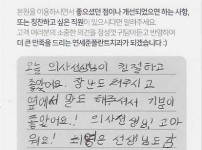 본원을 이용하시면서 좋았던 점이나 개선되었으면 하는 사항,
또는 칭찬하고 싶은 직원이 있으시다면 말씀해주세요.
고객 여러분의 소중한 의견을 정성껏 귀담아듣고 반영하여
더 큰 만족을 드리는 연세준플란트치과가 되겠습니다 :)
오늘 의사선생님이 친절하고
좋았어요. 장난도 쳐주시고
옆에서 말도 해주셔서 기분이
좋았어요! 의사선생님! 고마
워요! 선생님도 감